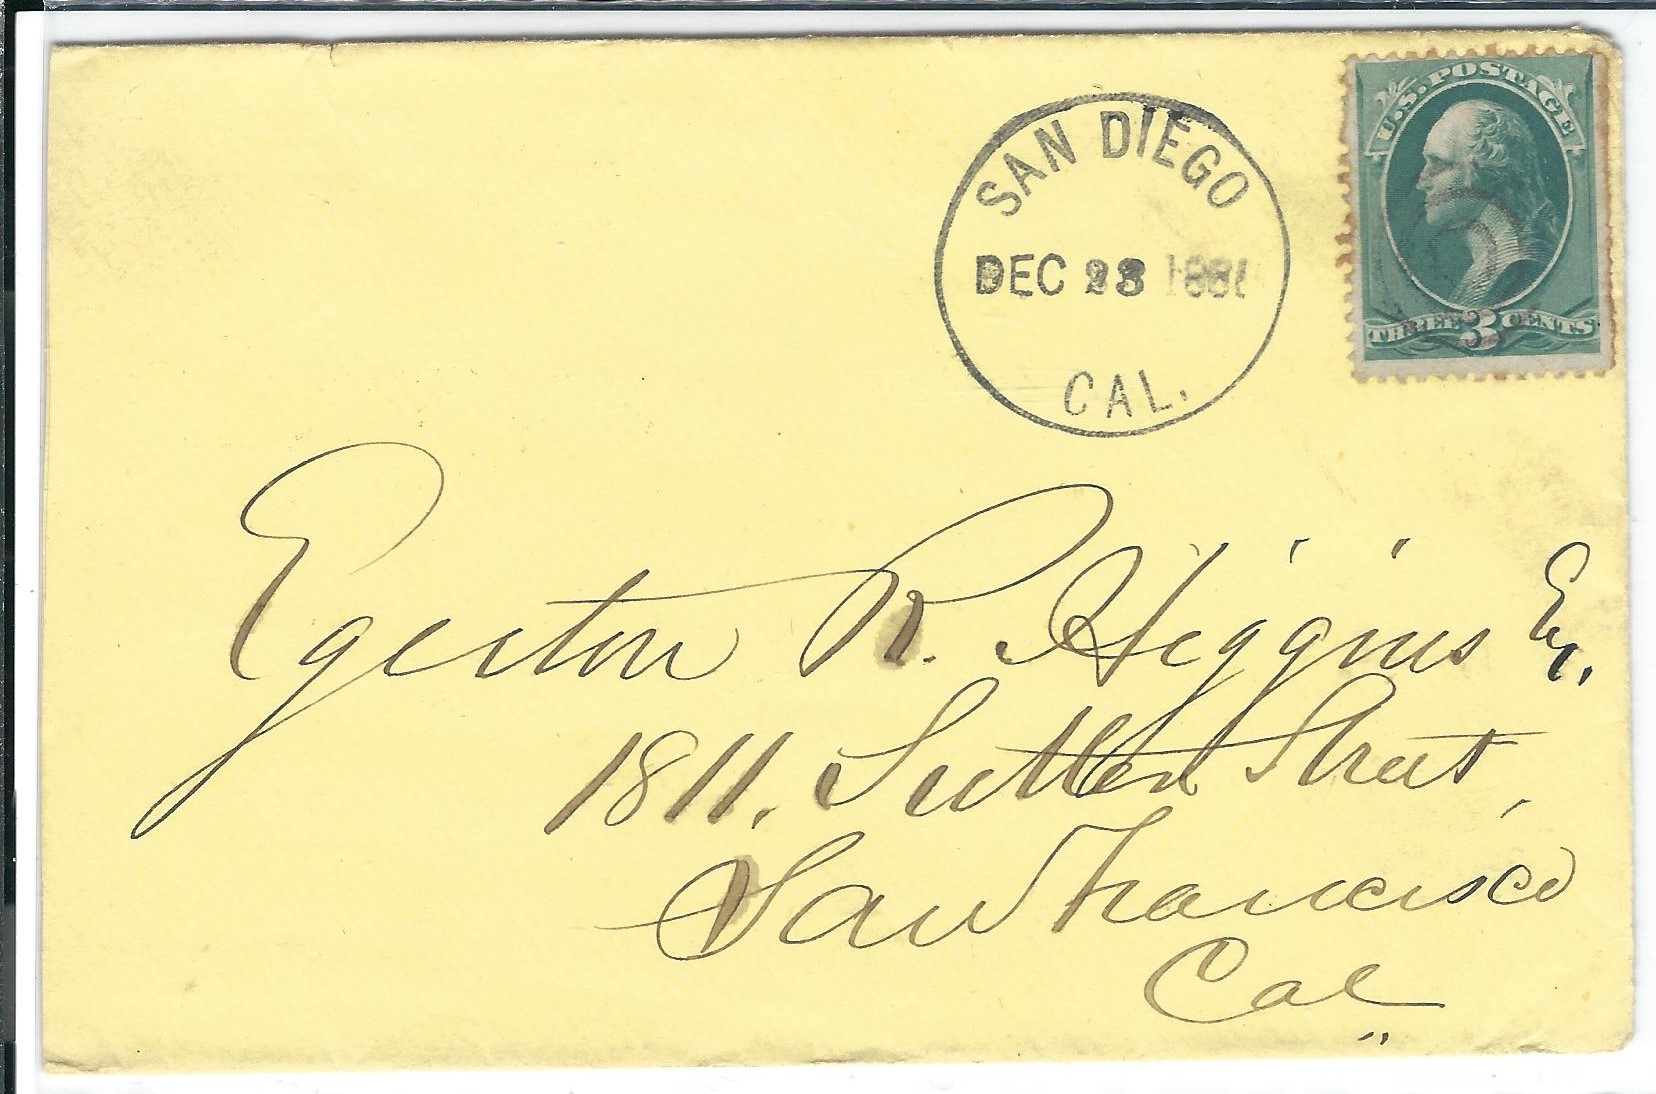 SAN DIEGO
DEC
CAL.
U.S. POSTAGE
THREE 3 CENTS
Egerton R. Higgins Esq.
1811. Sutter Street,
San Francisco
Cal